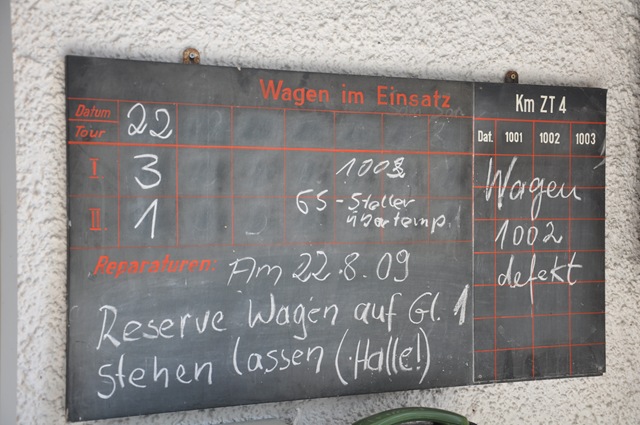 Wagen im Einsatz
Datum
Tour
22
I 3 1003
GS-Steller
übertemp.
II 1
Reparaturen: Am 22.8.09
Reserve Wagen auf Gl. 1
stehen lassen (Halle!)
Km ZT 4
Dat. 1001 1002 1003
Wagen
1002
defekt